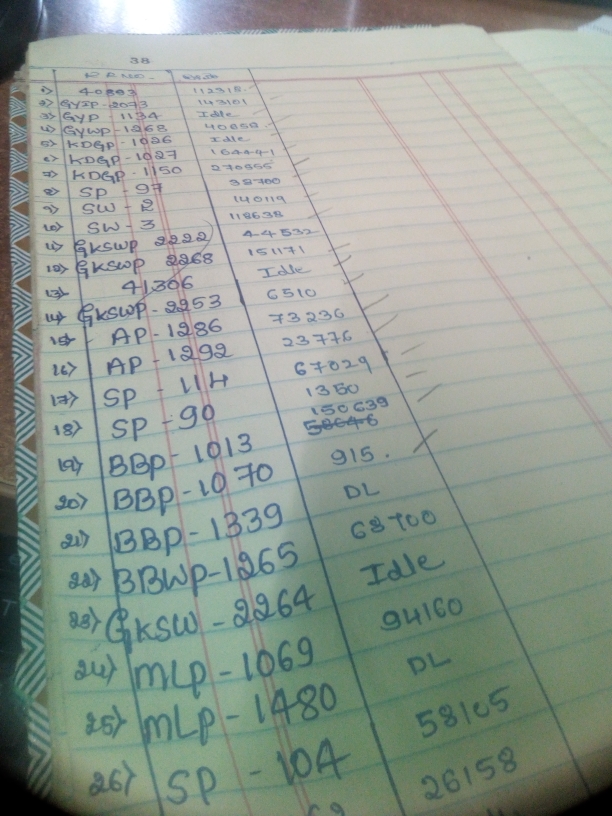 38
P.R.NO.
1) 40883 112318
2) GYIP-2073 143101
3) GYP 1134 Idle
4) GYWP-1268 40658
5) KDGP-1026 Idle
6) KDGP-1027 164441
7) KDGP-1150 270855
8) SP - 97 38700
9) SW - 2 140119
10) SW - 3 118638
11) GKSWP 2222 44532
12) GKSWP 2268 151171
13) 41306 Idle
14) GKSWP-2253 6510
15) AP-1286 73236
16) AP-1292 23776
17) SP - 114 67029
18) SP - 90 1350
19) BBP-1013 150639
20) BBP-1070 915.
21) BBP-1339 DL
22) BBWP-1265 68700
23) GKSW-2264 Idle
24) MLP-1069 94160
25) MLP-1480 DL
26) SP - 104 58105
26158